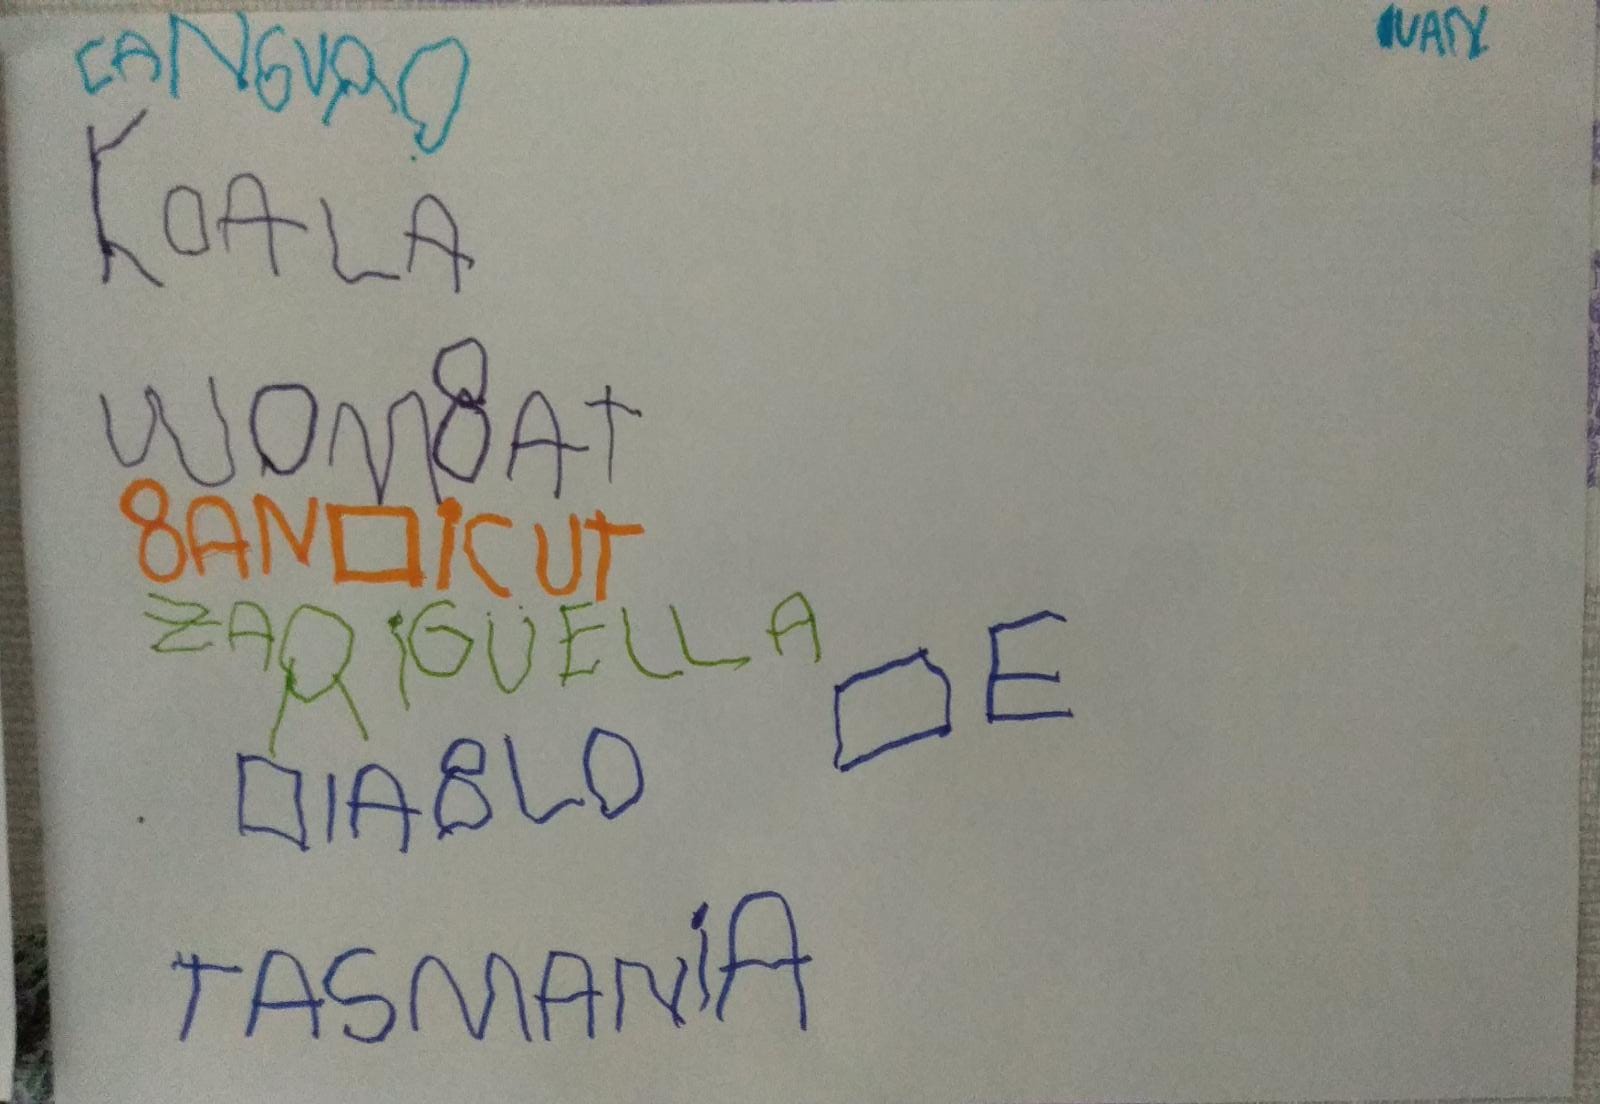 CANGURO
KOALA
WOMBAT
BANDICUT
ZARIGÜELLA
DIABLO DE
TASMANIA